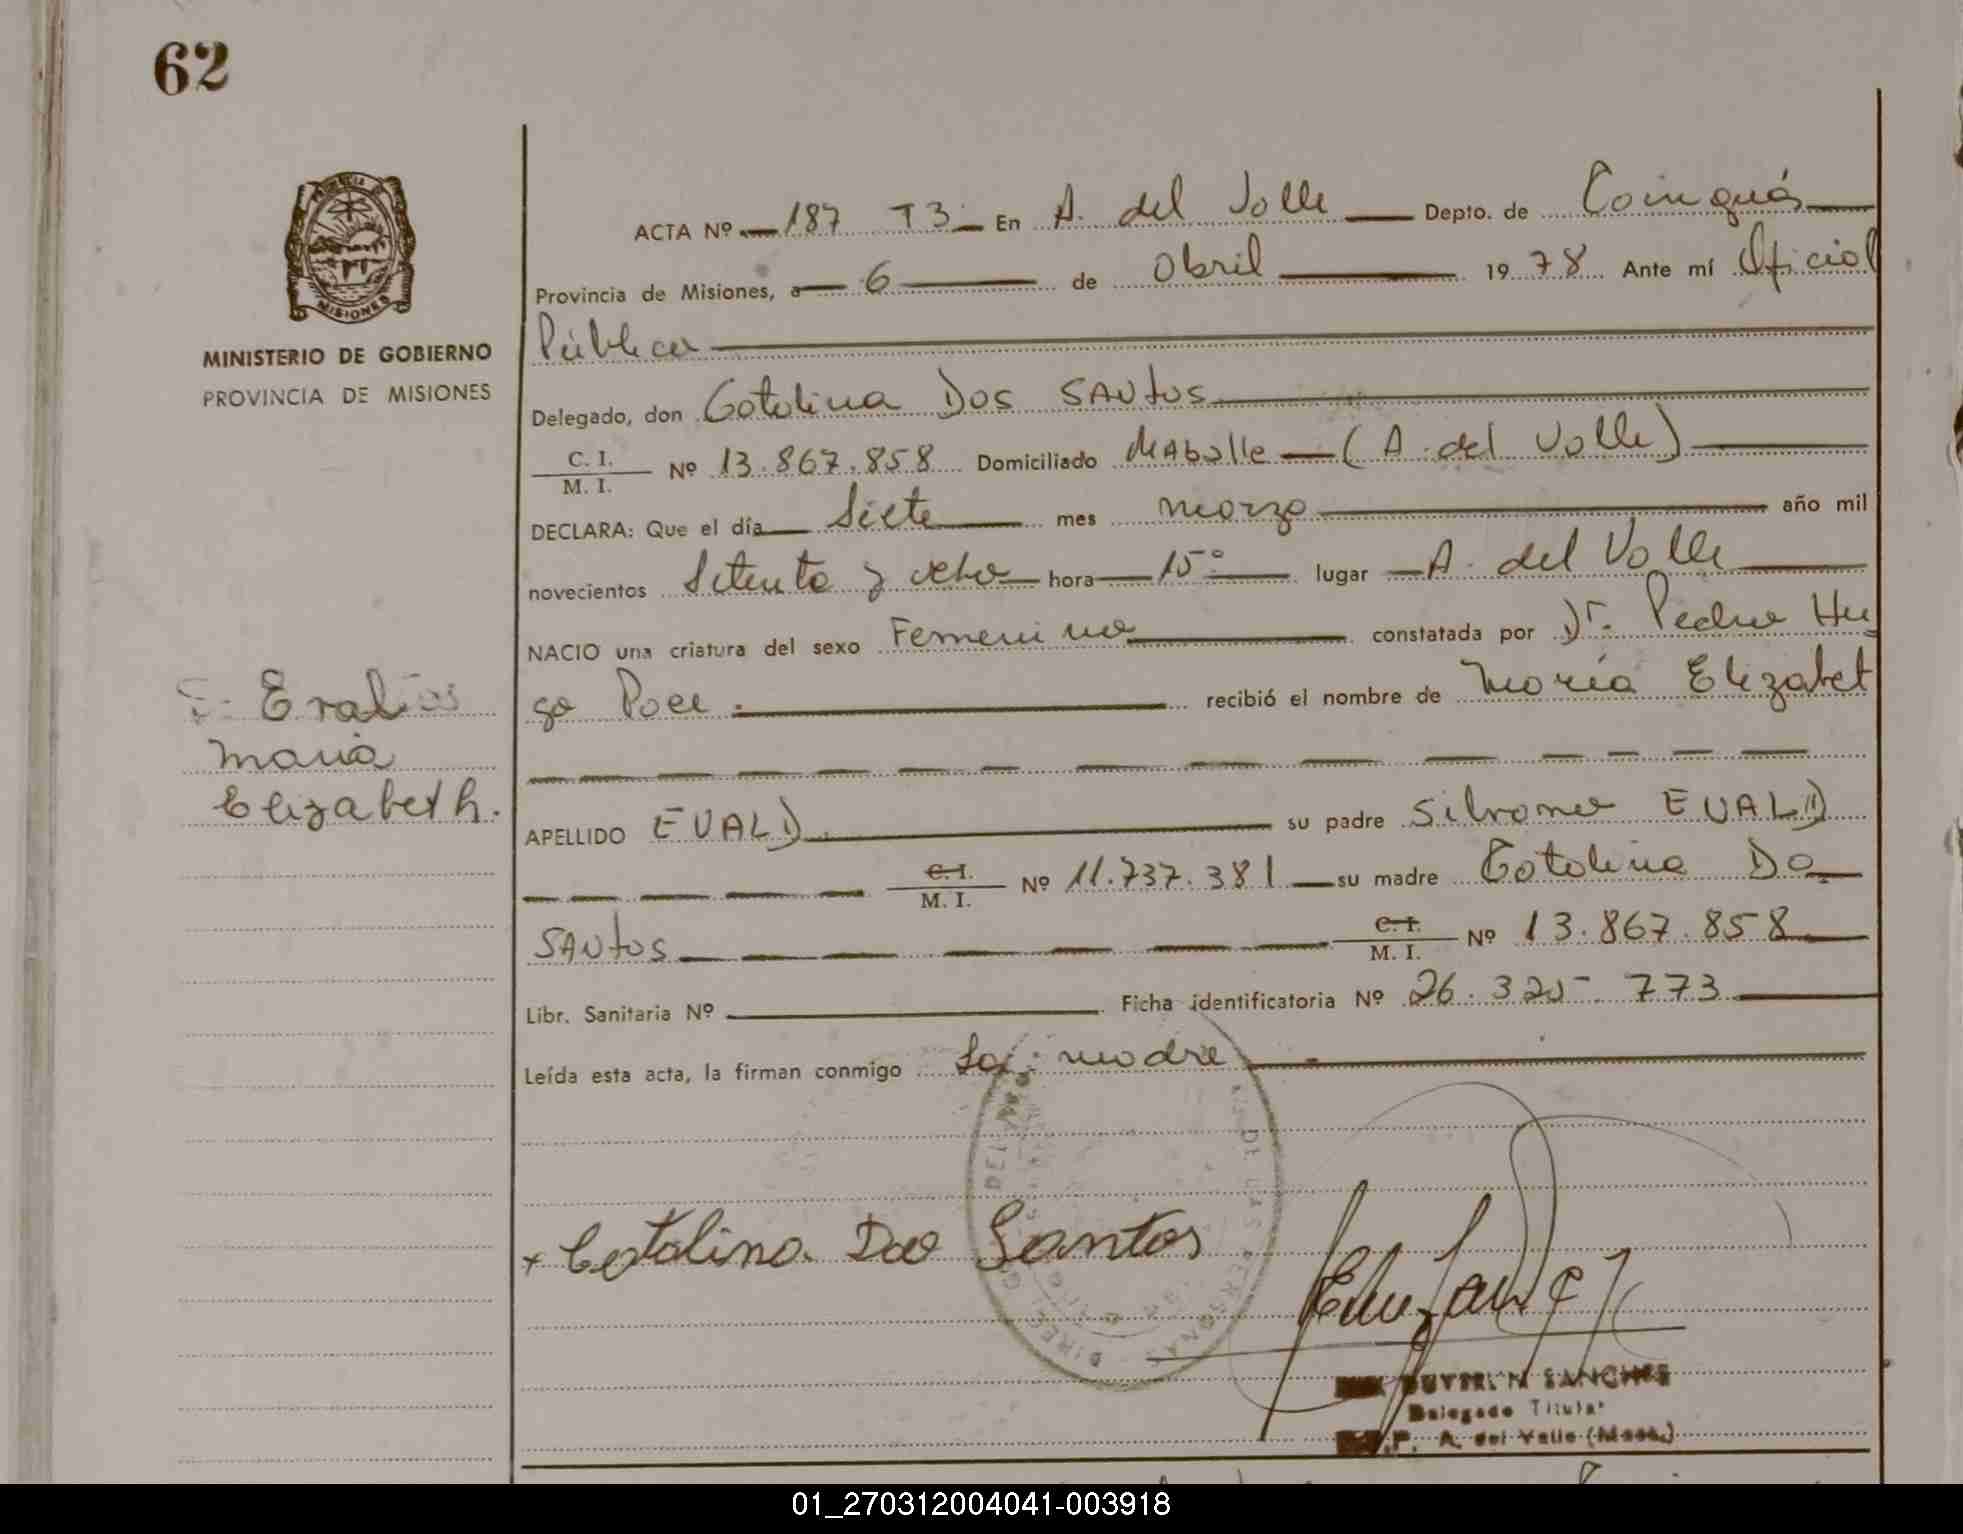 62
MINISTERIO DE GOBIERNO
PROVINCIA DE MISIONES
MISIONES
ACTA Nº 187 T3 En A. del Valle Depto. de Cainguás
Provincia de Misiones, a 6 de Abril 1978 Ante mí Oficial
Público
Delegado, don Catalina Dos SANtos
C. I.
M. I. Nº 13.867.858 Domiciliado (A. del Valle)
DECLARA: Que el día Siete mes marzo año mil
novecientos Setenta y ocho hora 15º lugar A. del Valle
NACIO una criatura del sexo Femenino constatada por Dr. Pedro Hu
go recibió el nombre de María Elizabet
Maria
Elizabeth.
APELLIDO EVALD. su padre Silvano EVALD
C. I.
M. I. Nº 11.737.381 su madre Catalina Do
SANtos C. I.
M. I. Nº 13.867.858
Libr. Sanitaria Nº Ficha identificatoria Nº 26.325.773
Leída esta acta, la firman conmigo La madre
x Catalina Dos Santos
SANCHEZ
Delegado Titular
A. del Valle (Mnes.)
01_270312004041-003918